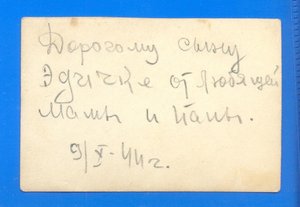 Дорогому сыну
Эдичке от любящей
мамы и папы.
9/X-44г.